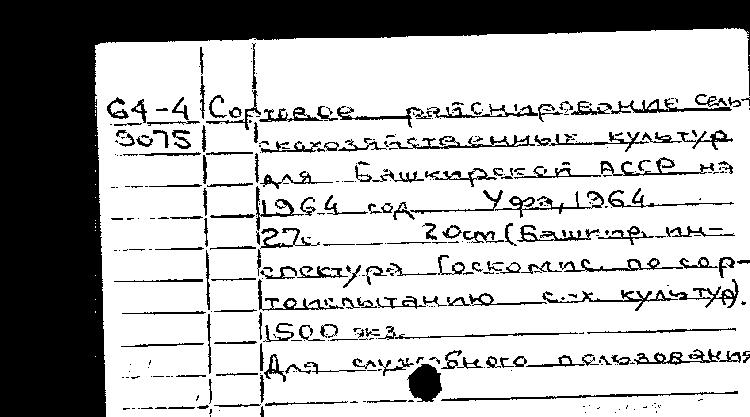 64-4 Сортовое районирование сель-
9075 скохозяйственных культур
для Башкирской АССР на
1964 год. Уфа, 1964.
27с. 20см (Башкир. ин-
спектура Госкомис. по сор-
тоиспытанию с.-х. культур).
1500 экз.
Для служебного пользования